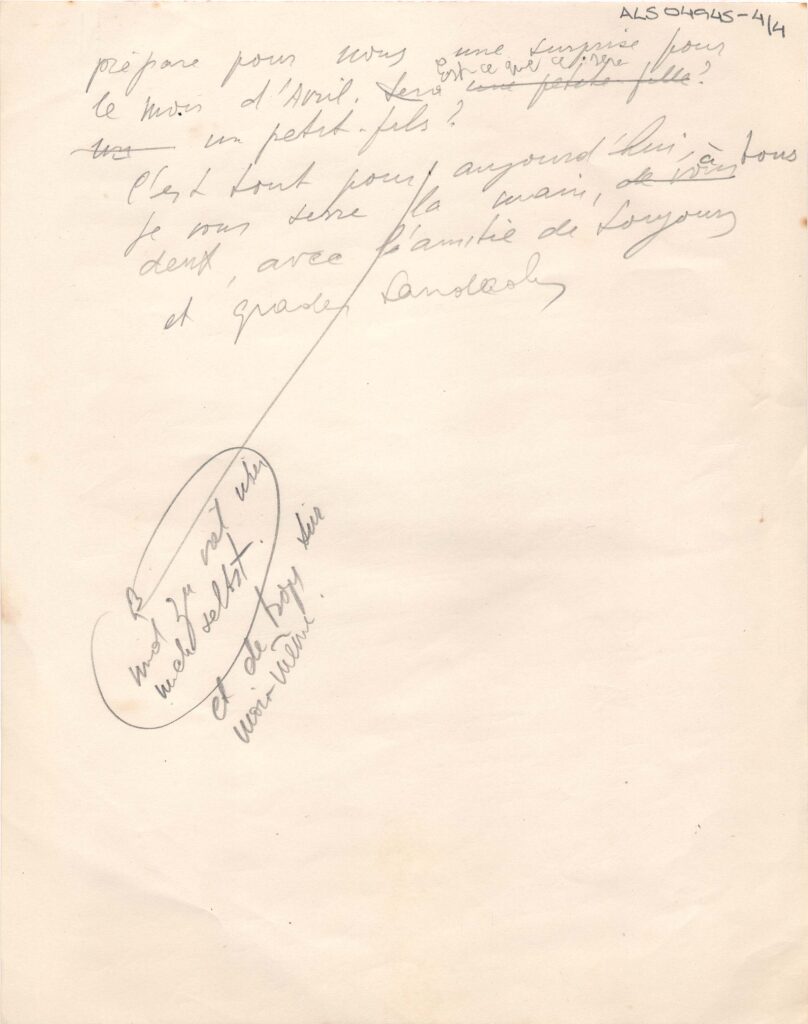 ALS 04945-4/4
prépare pour nous une surprise pour
Est-ce que ce sera
le mois d'Avril. Sera une petite fille?
un un petit-fils?
C'est tout pour aujourd'hui,
je vous serre la main, de vous à tous
deux, avec l'amitié de toujours
et
und zu viel über
mich selbst.
et de trop sur
moi-même.